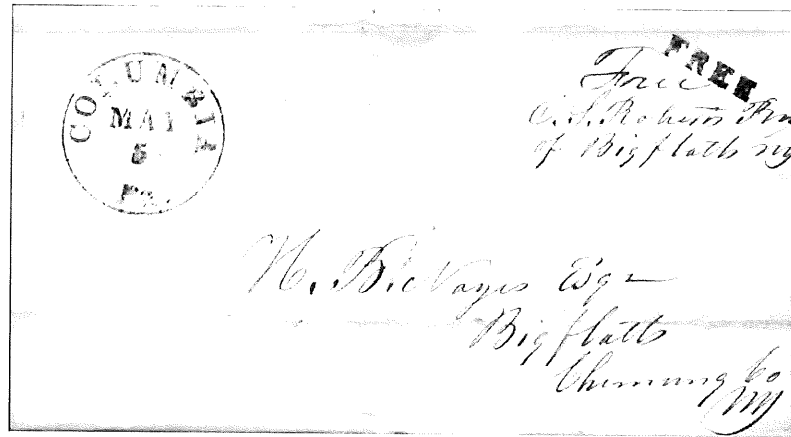 COLUMBIA
MAY
5
Pa.
FREE
Free
C. S. Roberts
of Bigflatts NY
N. Esqr
Bigflatts
Chemung Co
NY